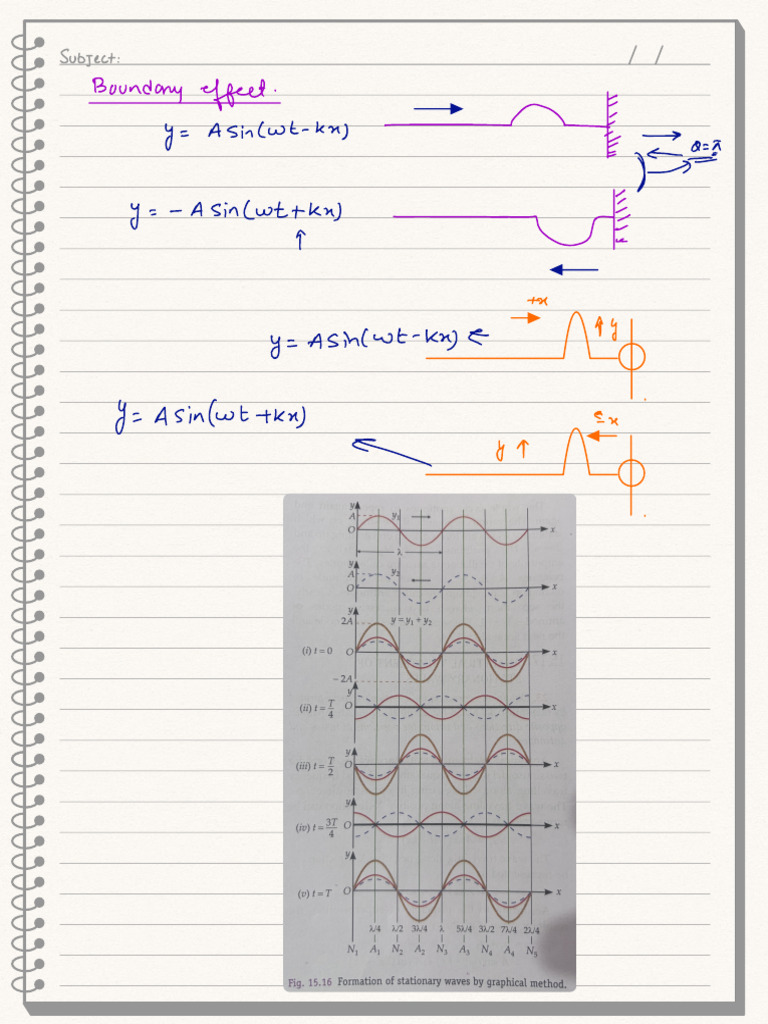 Subject: / /
Boundary effect.
y = A sin(ωt - kx)
θ = π
y = - A sin(ωt + kx)
+x
y = A sin(ωt - kx)
y
y = A sin(ωt + kx)
x
y
y
A
y₁
O
x
λ
y
A
y₂
O
x
y
2A
y = y₁ + y₂
(i) t = 0 O x
- 2A
y
(ii) t = T/4 O x
y
(iii) t = T/2 O x
y
(iv) t = 3T/4 O x
y
(v) t = T O x
λ/4 λ/2 3λ/4 λ 5λ/4 3λ/2 7λ/4 2λ/4
N₁ A₁ N₂ A₂ N₃ A₃ N₄ A₄ N₅
Fig. 15.16 Formation of stationary waves by graphical method.